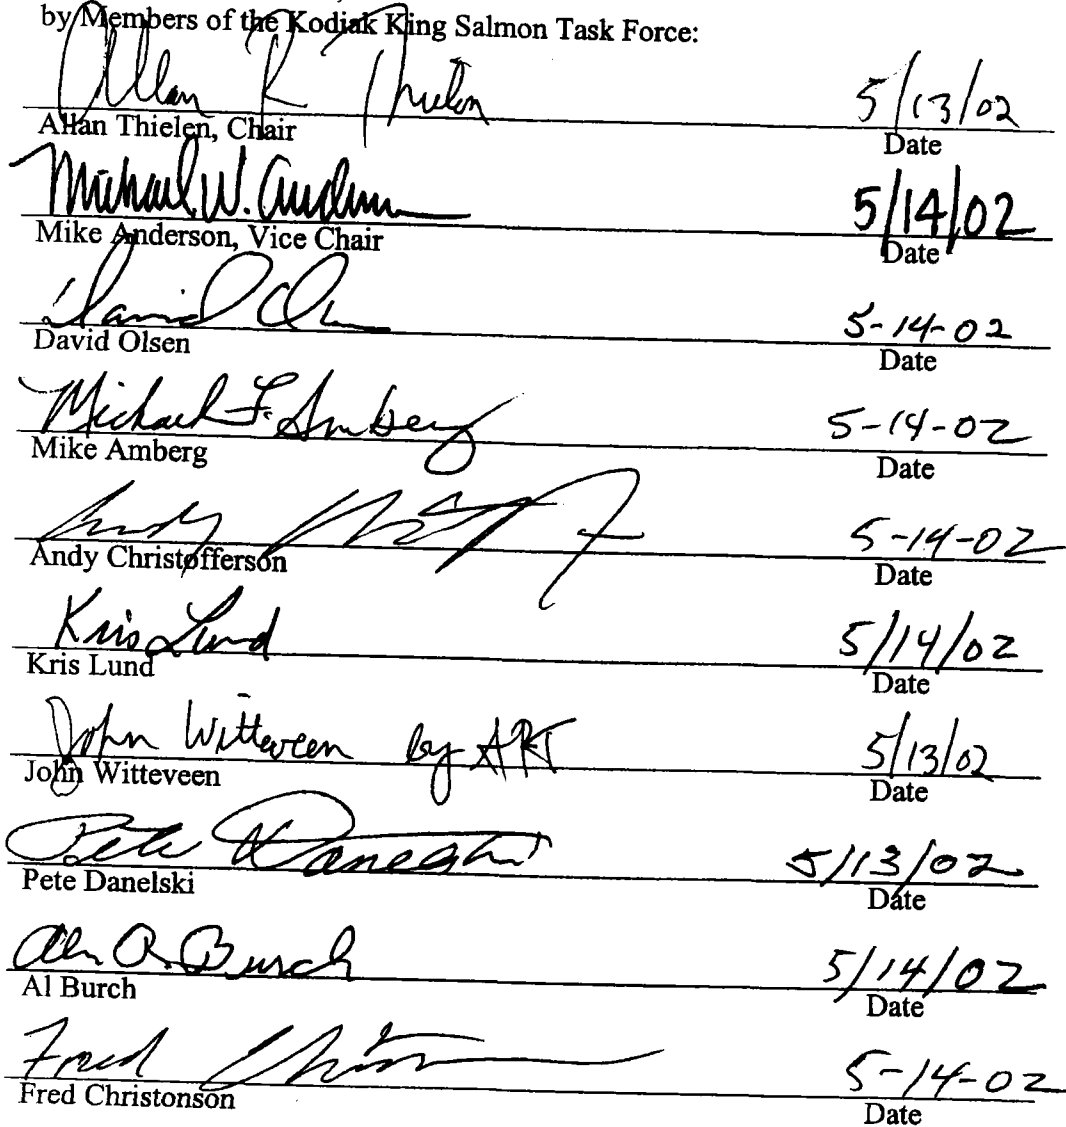 by Members of the Kodiak King Salmon Task Force:
Allan R Thielen 5/13/02
Allan Thielen, Chair Date
Michael W. Anderson 5/14/02
Mike Anderson, Vice Chair Date
David Olsen 5-14-02
David Olsen Date
Michael F. Amberg 5-14-02
Mike Amberg Date
Andy 5-14-02
Andy Christofferson Date
Kris Lund 5/14/02
Kris Lund Date
John Witteveen by ART 5/13/02
John Witteveen Date
Pete Danelski 5/13/02
Pete Danelski Date
Burch 5/14/02
Al Burch Date
Fred 5-14-02
Fred Christonson Date